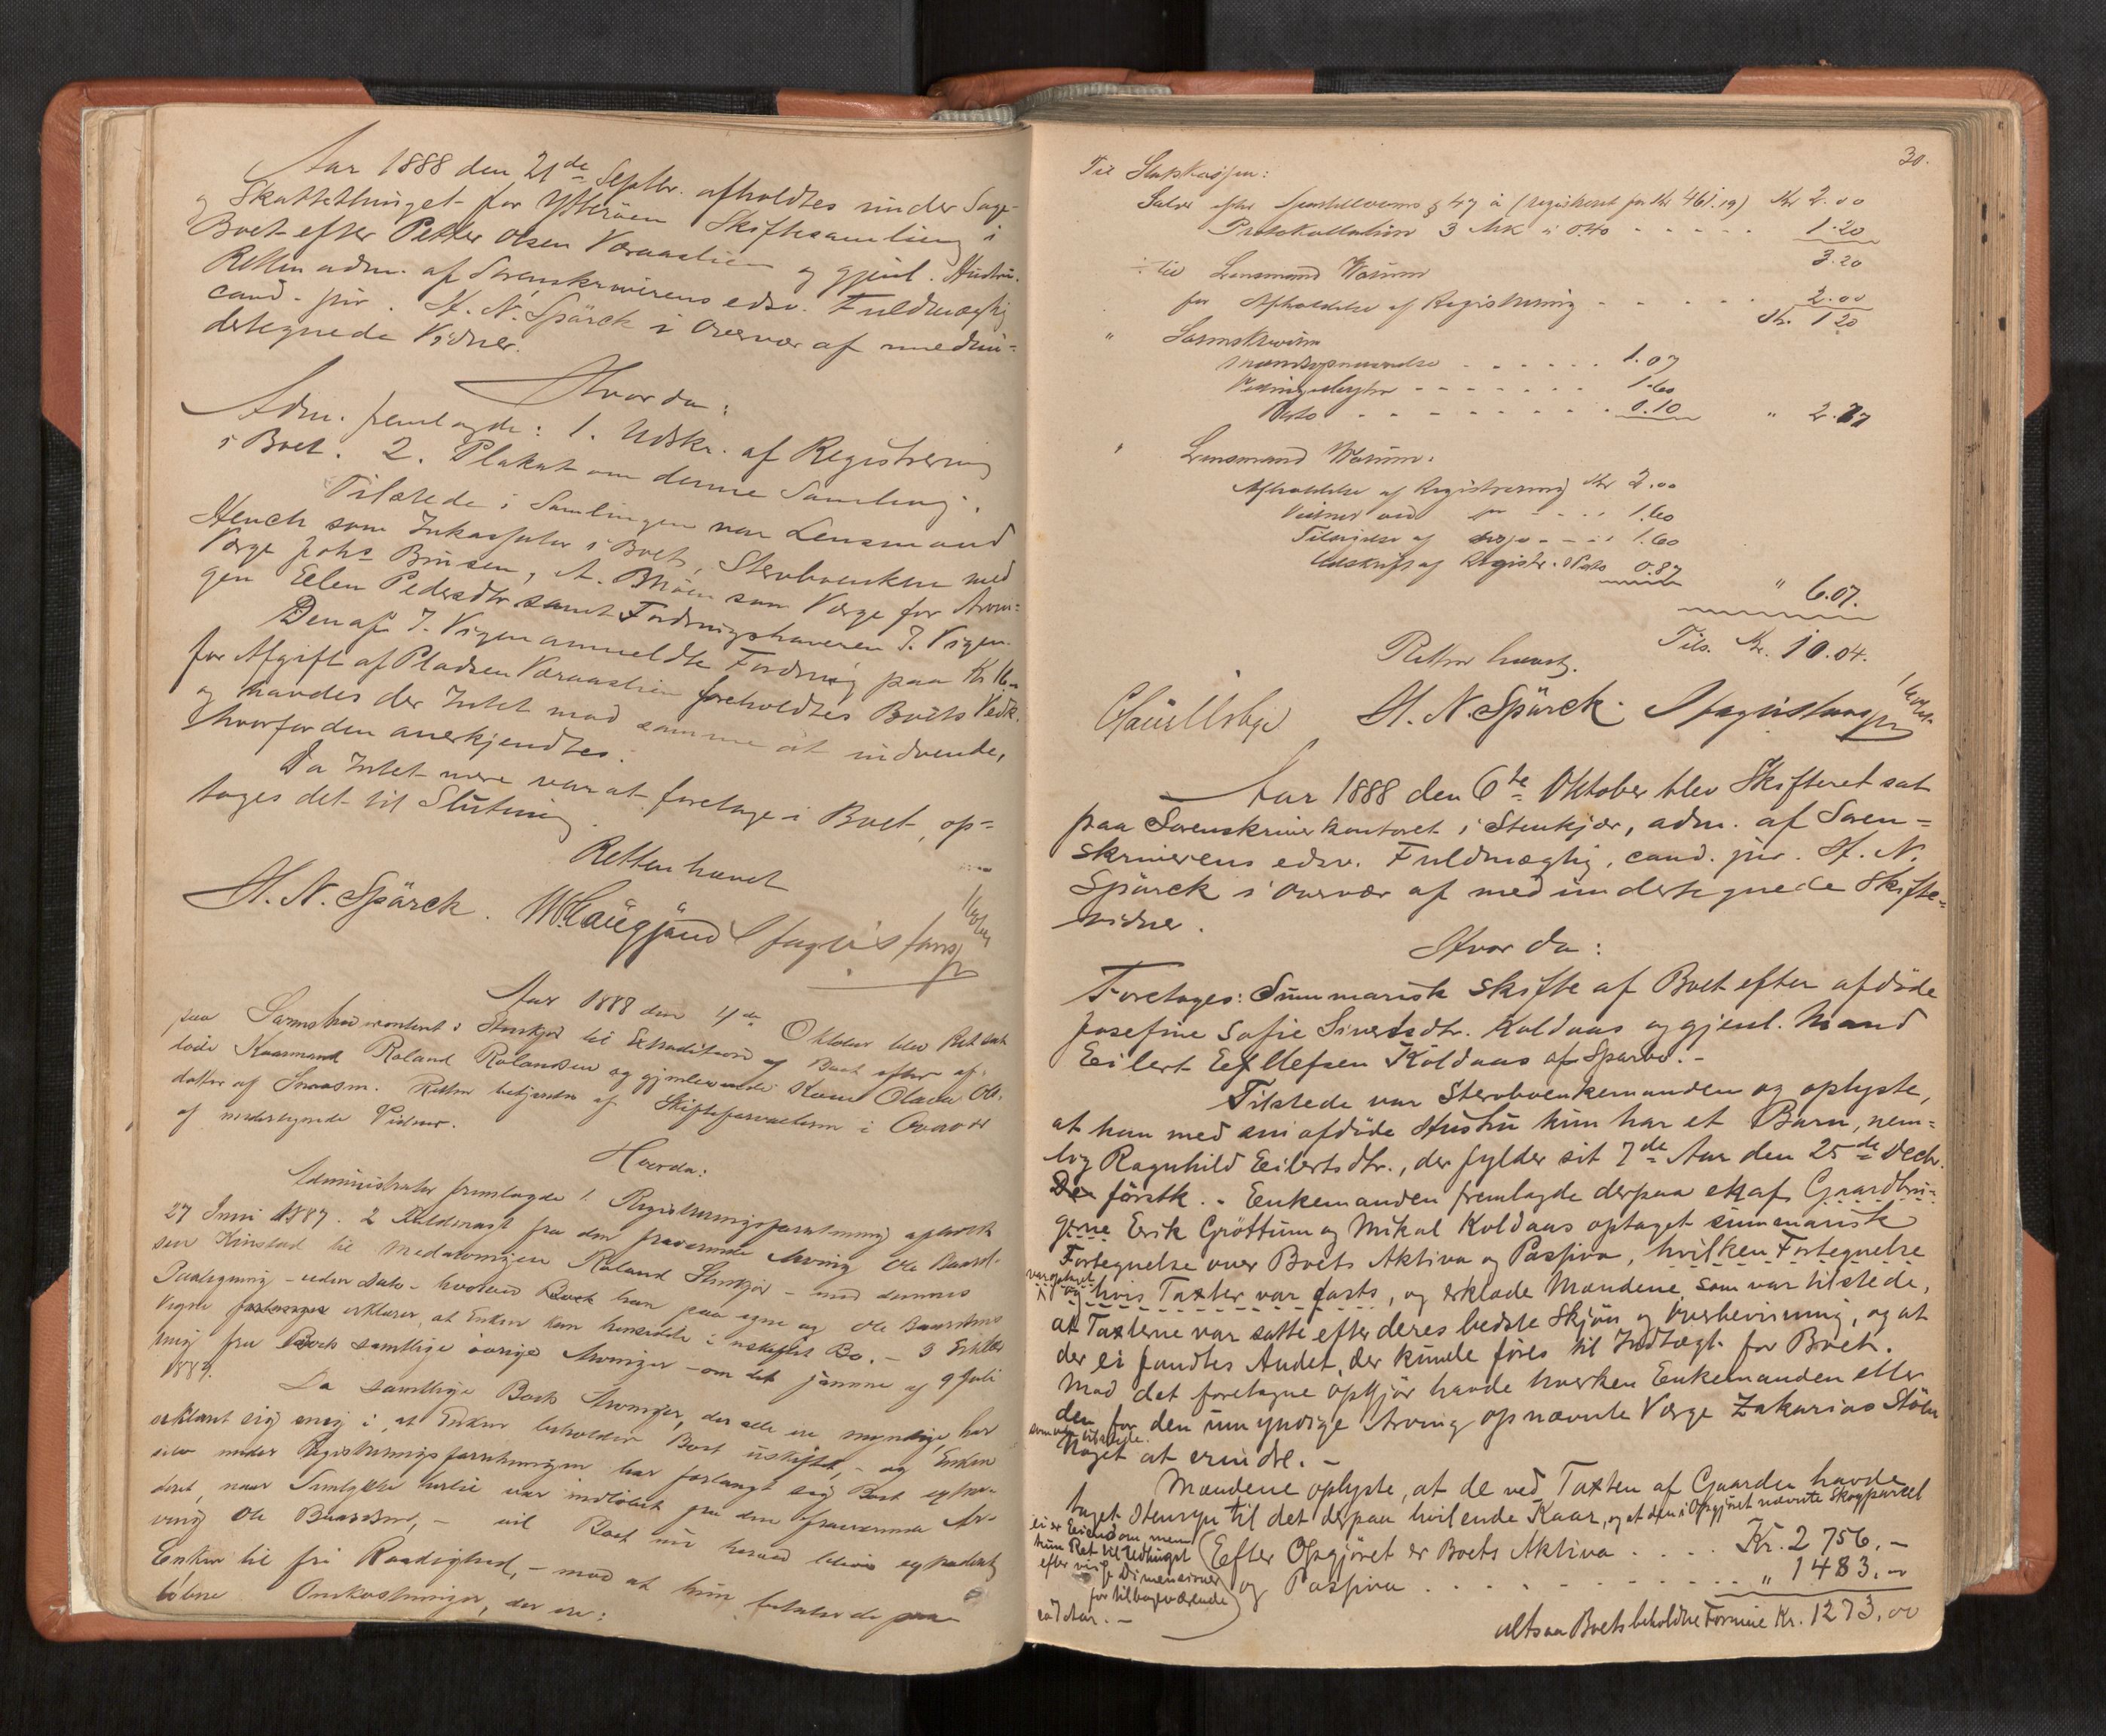 Aar 1888 den 21de Septbr. afholdtes under Sage-
og Skattethinget for Ytterøen Skiftesamling i
Boet efter Petter Olsen Væraaslien og gjenl. Hustru.
Retten adm. af Sorenskriverens edsv. Fuldmægtig
cand. jur. H. N. Spärck i Overvær af medun-
dertegnede Vidner.
Hvorda:
Adm. fremlagde: 1. Udskr. af Registrering
i Boet. 2. Plakat om denne Samling.
Tilstede i Samlingen var Lensmand
som Inkassator i Boet, Stervboenken med
Værge Johs Brusen, A. som Værge for Arvin-
gen Ellen Pedersdtr samt Fordringshaveren J. Vigen.
Den af J. Vigen anmeldte Fordring paa Kr
for Afgift af Pladsen Væraaslien foreholdtes Boets Vedk.
og havdes der Intet mod samme at indvende,
hvorfor den anerkjendtes.
Da Intet mere var at foretage i Boet, op-
toges det til Slutning
Retten hævet
H. N. Spärck.
Aar 1888 den 4de Oktober blev Ret sat
paa Sorenskriverkontoret i Stenkjær til Extradition af Boet efter af-
døde Kaarmand Roland Rolandsen og gjenlevende Kone Olava Ols-
datter af Snaasen. Retten betjentes af Skifteforvalteren i Overvær
af undertegnede Vidner.
Hvorda:
Administrator fremlagde 1. Registreringsforretning afholdt
27 Juni 1887. 2 fra den fraværende Arving Ole
sen Kinstad til Medarvingen Roland Stenkjær - med dennes
Paategning - uden Dato - hvorved han paa egne og Ole
Vegne erklærer, at Enken kan hensidde i uskiftet Bo. - 3 Erklæ-
ring fra Boets samtlige øvrige Arvinger - om det samme af 9 Juli
1887.
Da samtlige Boets Arvinger, der alle ere myndige, har
erklæret sig enig i, at Enken beholder Boet uskiftet, - og Enken
selv under Registreringsforretningen har forlangt sig Boet extra-
deret, naar Samtykke hertil var indløbet fra den fraværende Ar-
ving Ole - vil Boet nu herved blive extraderet
Enken til fri Raadighed, - mod at hun betaler de paa-
løbne Omkostninger, der ere:
30.
Til Statskassen:
Gebyr efter § 47 a (registreret for Kr 461.19) Kr 2.00
Protokollation 3 Mrk a 0.40 - - - - - 1.20
3.20
÷ til Lensmand
for Afholdelse af Registrering - - - - - 2.00
Kr. 1 20
" Sorenskriveren
- - - - - - 1.07
- - - - - - 1.60
Porto - - - - - - - - 0.10 " 2.77
" Lensmand
Afholdelse af Registrering Kr 2.00
Vidner ved do - - - 1.60
Tilsigelse af - - - 1.60
Udskrift af Registr. 0.87
" 6.07.
Tils. Kr. 10.04.
Retten hævet.
H. N. Spärck.
Aar 1888 den 6te Oktober blev Skifteret sat
paa Sorenskriverkontoret i Stenkjær, adm. af Soren-
skriverens edsv. Fuldmægtig, cand. jur. H. N.
Spärck i Overvær af medundertegnede Skifte-
vidner.
Hvorda:
Foretoges: Summarisk Skifte af Boet efter afdøde
Josefine Sofie Sivertsdtr. Koldaas og gjenl. Mand
Eilert Ellefsen Koldaas af Sparbu. -
Tilstede var Stervboenkemanden og oplyste,
at han med sin afdøde Hustru kun har et Barn, nem-
lig Ragnhild Eilertsdtr., der fylder sit 7de Aar den 25de Decbr.
førstk. - Enkemanden fremlagde derpaa et af Gaardbru-
gerne Erik Grøttum og Mikal Koldaas optaget summarisk
Fortegnelse over Boets Aktiva og Passiva, hvilken Fortegnelse
var oplæst
og hvis Taxter var , og erklæde Mændene, som var tilstede,
at Taxterne var satte efter deres bedste Skjøn og Overbevisning, og at
der ei fandtes Andet, der kunde føres til Indtægt for Boet.
Mod det foretagne Opgjør havde hverken Enkemanden eller
den for den umyndige Arving opnævnte Værge Zakarias
som var tilstede.
Noget at erindre. -
Mændene oplyste, at de ved Taxten af Gaarden havde
taget Hensyn til det derpaa hvilende Kaar, og at den i Opgjøret nævnte Skogparcel
ei er Eiendom men
kun Ret til Udhugst
efter visse Dimensioner
for tilbageværende
(Efter Opgjøret er Boets Aktiva . . . . Kr. 2 756. -
og Passiva . . . . . . . . . . . . " 1483.00
altsaa Boets beholdne Formue Kr. 1273.00